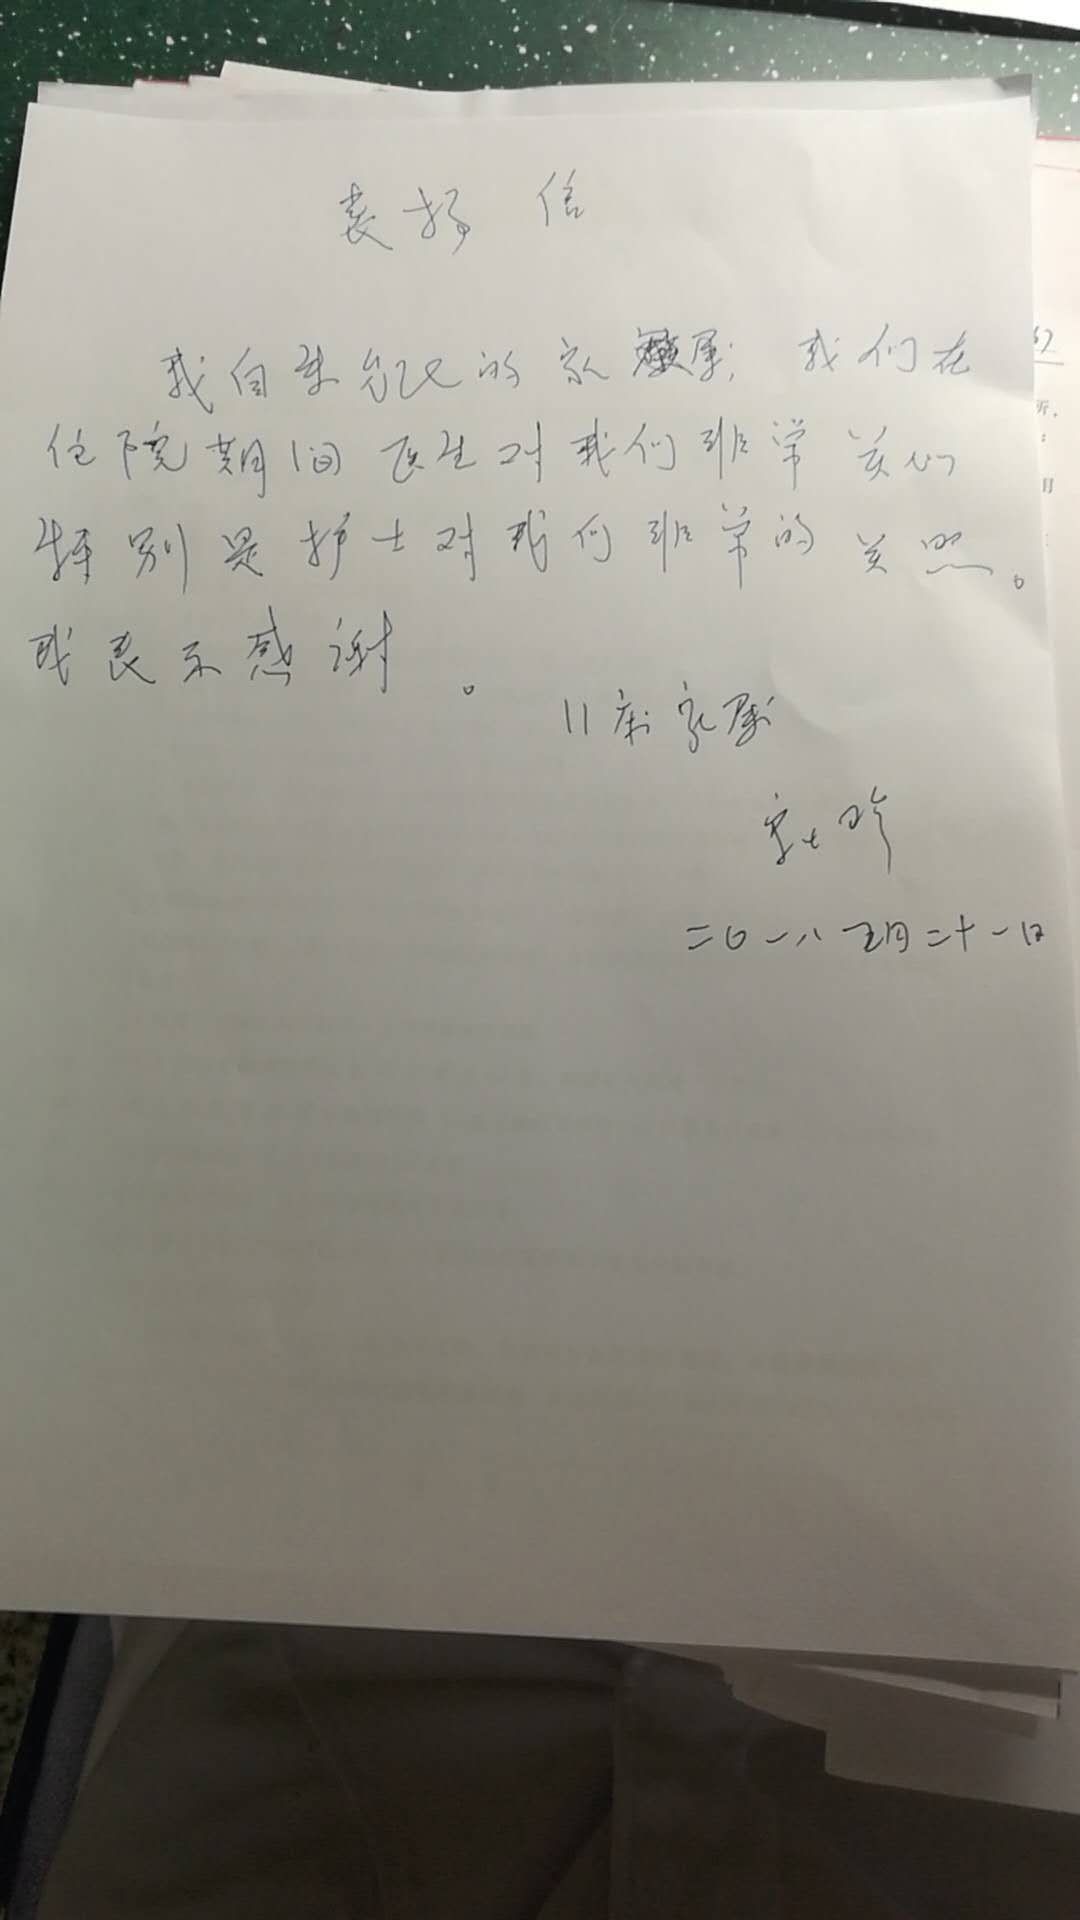 表扬 信
我自来 的家 属，我们在
住院期间医生对我们非常关心
特别是护士对我们非常的关照。
我表示感谢。
11床家属
二0一八 五月二十一日